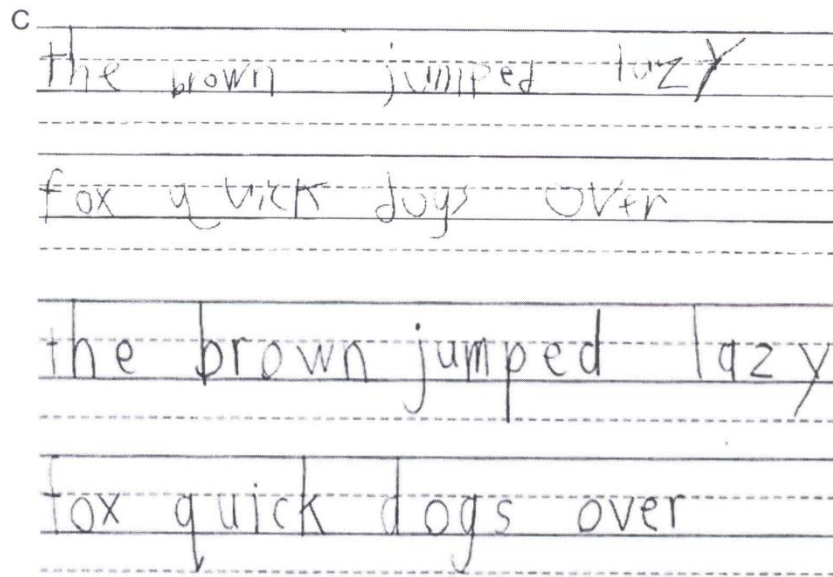 C
the brown jumped lazy
fox quick dogs over
the brown jumped lazy
fox quick dogs over